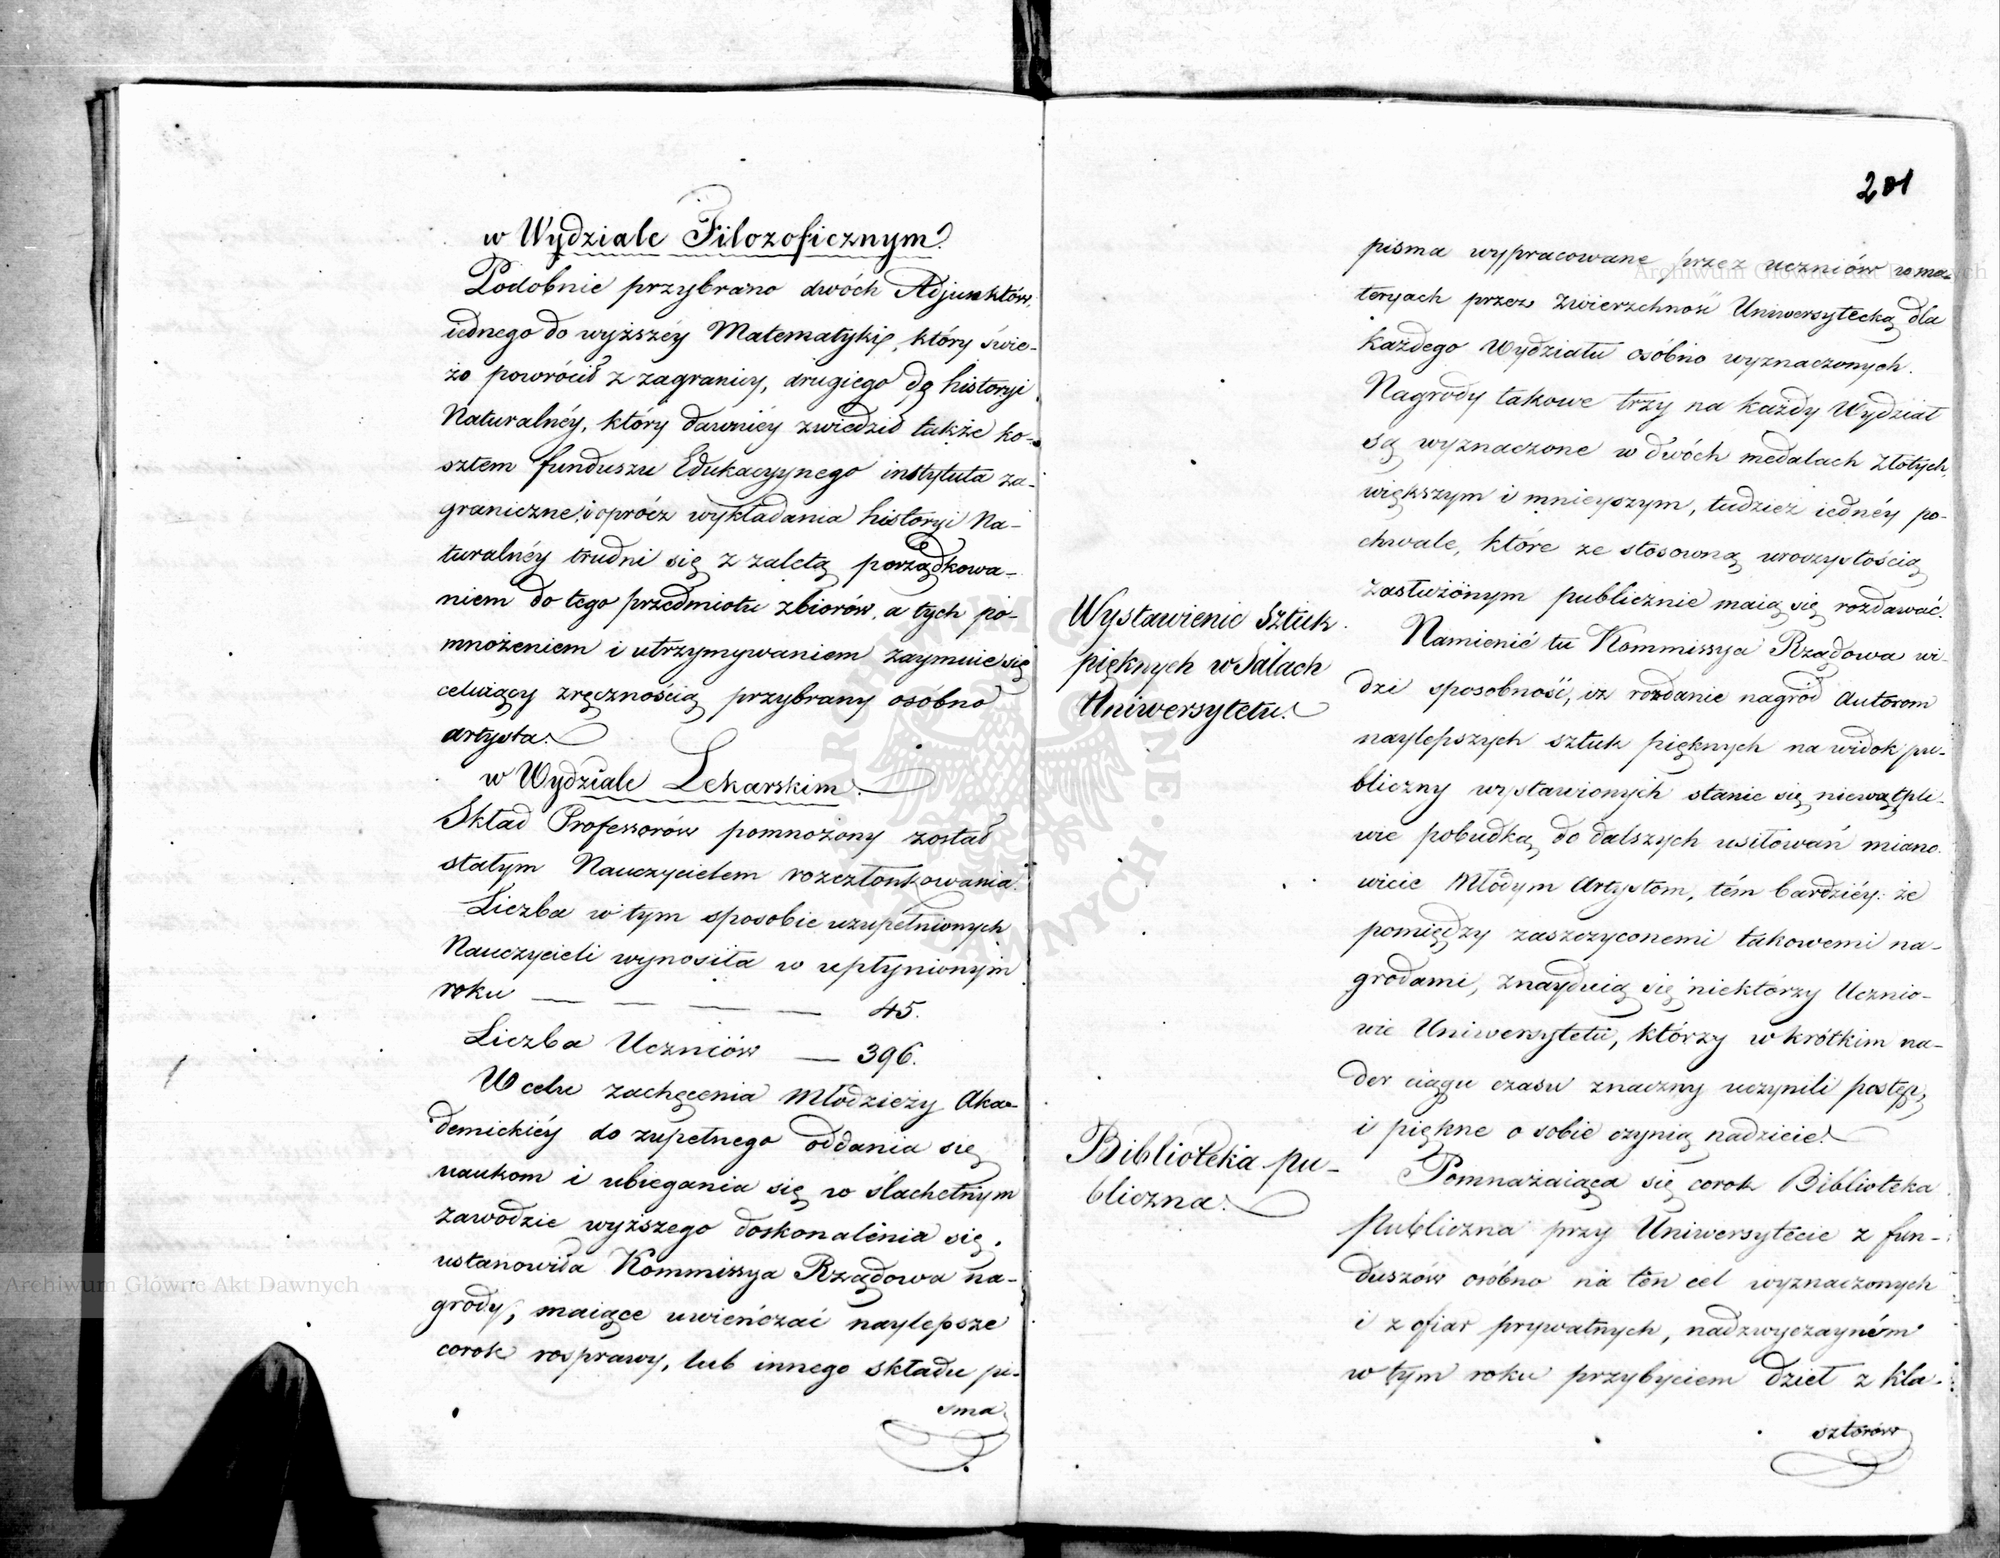 w Wydziale Filozoficznym.
Podobnie przybrano dwóch Adjunktów,
iednego do wyższéy Matematyki, który świe-
żo powrócił z zagranicy, drugiego do historyi
Naturalnéy, który dawniéy zwiedził także ko-
sztem funduszu Edukacyynego instytuta za-
graniczne, i oprócz wykładania historyi Na-
turalnéy trudni się z zaletą porządkowa-
niem do tego przedmiotu zbiorów, a tych po-
mnożeniem i utrzymywaniem zaymuie się
celuiący zręcznością przybrany osóbno
artysta.
w Wydziale Lekarskim.
Skład Professorów pomnożony został
stałym Nauczycielem rozczłonkowania.
Liczba w tym sposobie uzupełnionych
Nauczycieli wynosiła w upłynionym
roku — — — — 45.
Liczba Uczniów — 396.
W celu zachęcenia Młodzieży Aka-
demickiéy do zupełnego oddania się
naukom i ubiegania się w ślachetnym
zawodzie wyższego doskonalénia się,
ustanowiła Kommissya Rządowa na-
grody, maiące uwieńczać naylepsze
corok rosprawy, lub innego składu pi-
sma
201
pisma wypracowane przez uczniów w ma-
teryach przez zwierzchność Uniwersytecką dla
każdego Wydziału osóbno wyznaczonych.
Nagrody takowe trzy na każdy Wydział
są wyznaczone w dwóch medalach złotych,
większym i mnieyszym, tudzież iednéy po-
chwale, które ze stosowną uroczystością
zasłużonym publicznie maią się rozdawać.
Wystawienie Sztuk
pięknych w Salach
Uniwersytetu.
Namienić tu Kommissya Rządowa wi-
dzi sposobność, iż rozdanie nagród Autorom
naylepszych sztuk pięknych na widok pu-
bliczny wystawionych stanie się niewątpli-
wie pobudką do dalszych usiłowań miano-
wicie Młodym Artystom, tém bardziéy: że
pomiędzy zaszczyconemi takowemi na-
grodami, znayduią się niektórzy Ucznio-
wie Uniwersytetu, którzy w krótkim na-
der ciągu czasu znaczny uczynili postęp,
i piękne o sobie czynią nadzieie.
Biblioteka pu-
bliczna.
Pomnażaiąca się corok Biblioteka
Publiczna przy Uniwersytecie z fun-
duszów osóbno na ten cel wyznaczonych
i z ofiar prywatnych, nadzwyczayném
w tym roku przybyciem dzieł z kla-
sztorów
Archiwum Główne Akt Dawnych
Archiwum Główne Akt Dawnych
ARCHIWUM GŁÓWNE AKT DAWNYCH